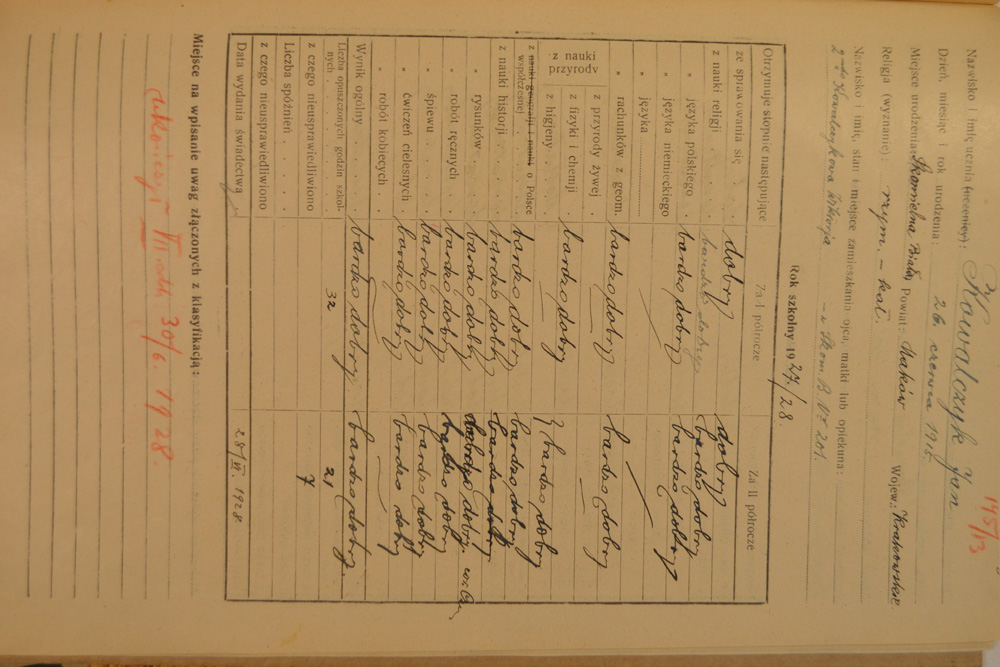 145/13
Nazwisko i imię ucznia (uczenicy): Kowalczyk Jan
Dzień, miesiąc i rok urodzenia: 26. czerwca 1915.
Miejsce urodzenia: Skomielna Biała, Powiat: Maków Wojew.: Krakowskie
Religja (wyznanie): rzym. – kat.
Nazwisko i imię, stan i miejsce zamieszkania ojca, matki lub opiekuna:
Wiktorja – w Skom. B. Nr 201.
Rok szkolny 1927/28.
Otrzymuje stopnie następujące Za I półrocze Za II półrocze
ze sprawowania się dobry dobry
z nauki religji bardzo dobry bardzo dobry
" języka polskiego bardzo dobry bardzo dobry
" języka niemieckiego — bardzo dobry
" języka
" rachunków z geom. bardzo dobry bardzo dobry
z nauki przyrody
z przyrody żywej — —
z fizyki i chemji bardzo dobry } bardzo dobry
z higjeny —
z nauki geografji i nauki o Polsce współczesnej bardzo dobry bardzo dobry
z nauki historji bardzo dobry bardzo dobry
" rysunków bardzo dobry bardzo dobry
" robót ręcznych bardzo dobry bardzo dobry
" śpiewu bardzo dobry bardzo dobry
" ćwiczeń cielesnych bardzo dobry bardzo dobry
" robót kobiecych — —
Wynik ogólny bardzo dobry bardzo dobry.
Liczba opuszczonych godzin szkolnych 32 21
z czego nieusprawiedliwiono 7
Liczba spóźnień
z czego nieusprawiedliwiono
Data wydania świadectwa 28/VI. 1928
Miejsce na wpisanie uwag złączonych z klasyfikacją:
ukończył VII oddz. 30/6. 1928.